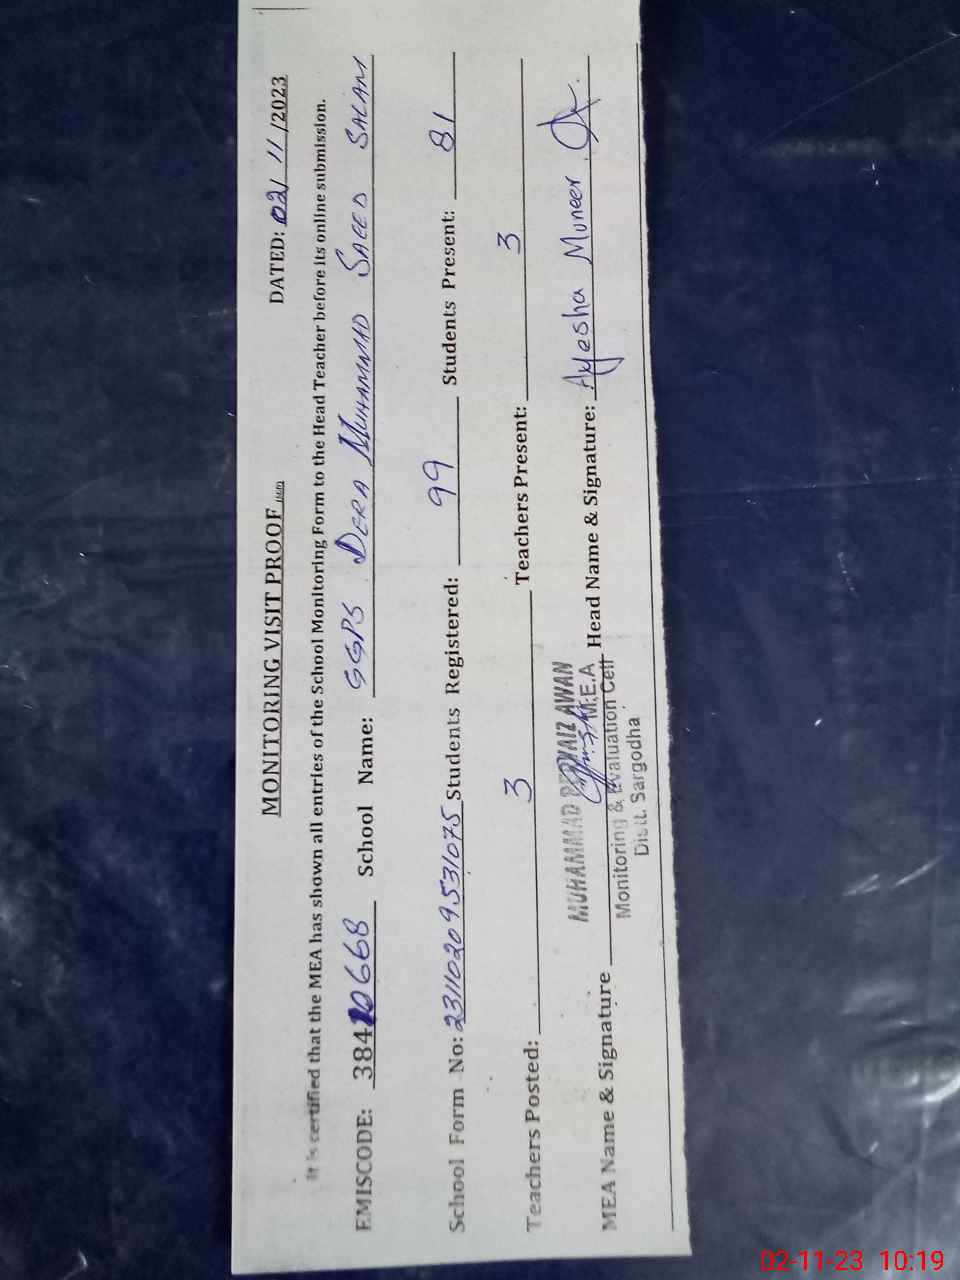 MONITORING VISIT PROOF
DATED: 02/11/2023
It is certified that the MEA has shown all entries of the School Monitoring Form to the Head Teacher before its online submission.
EMISCODE: 38410668 School Name: GGPS DERA MUHAMMAD SAEED SALAM
School Form No: 23110209531075 Students Registered: 99 Students Present: 81
Teachers Posted: 3 Teachers Present: 3
MUHAMMAD PERVAIZ AWAN
M.E.A
MEA Name & Signature Head Name & Signature: Ayesha Muneer
Monitoring & Evaluation Cell
Distt. Sargodha
02-11-23 10:19